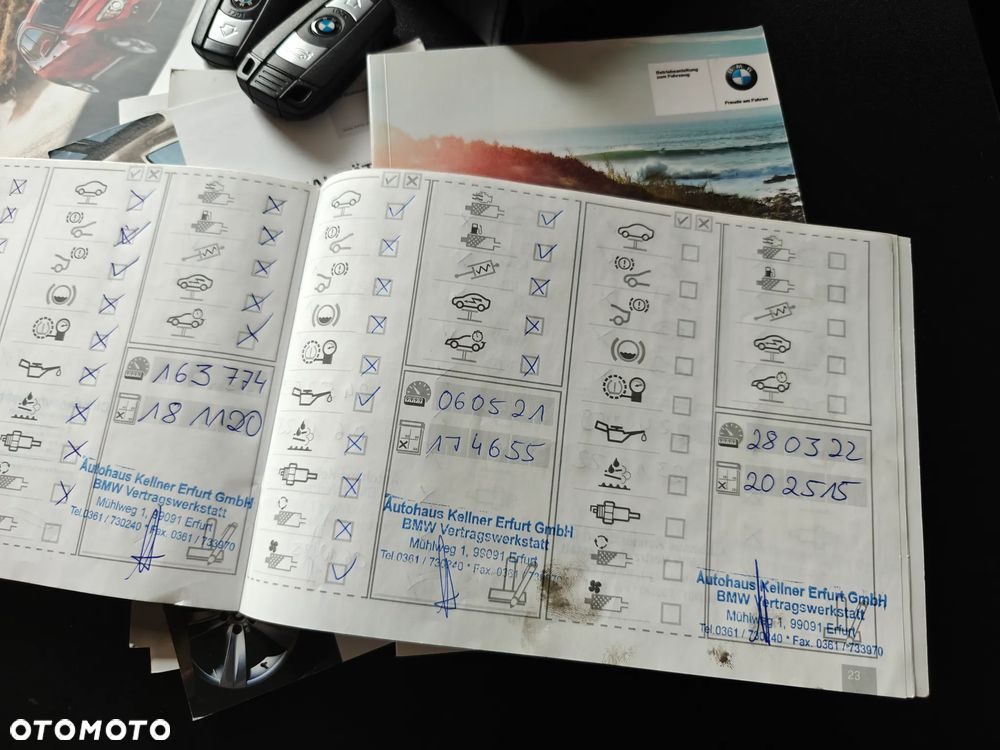 Betriebsanleitung
zum Fahrzeug
BMW
Freude am Fahren
163 774
18 11 20
Autohaus Kellner Erfurt GmbH
BMW Vertragswerkstatt
Mühlweg 1, 99091 Erfurt
Tel.0361 / 730240 * Fax. 0361 / 733970
06 05 21
174655
Autohaus Kellner Erfurt GmbH
BMW Vertragswerkstatt
Mühlweg 1, 99091 Erfurt
Tel.0361 / 730240 * Fax. 0361 / 733970
28 03 22
202515
Autohaus Kellner Erfurt GmbH
BMW Vertragswerkstatt
Mühlweg 1, 99091 Erfurt
Tel.0361 / 730240 * Fax. 0361 / 733970
23
OTOMOTO